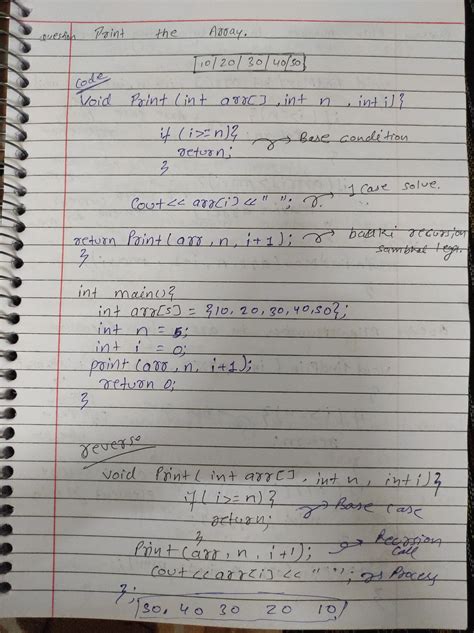 question Print the Array.
10/20/30/40/50
code
void Print (int arr[], int n, int i){
if (i>=n){ → Base condition
return;
}
cout<< arr[i] << " "; → 1 case solve.
return Print(arr, n, i+1); → badki recursion
sambhal lega.
}
int main(){
int arr[5] = {10, 20, 30, 40, 50};
int n = 5;
int i = 0;
print(arr, n, i+1);
return 0;
}
reverse
void Print( int arr[], int n, int i){
if( i>=n){ → Base case
return;
}
Print(arr, n, i+1); → Recursion
call
cout << arr[i] << " "; → Process
};
50, 40 30 20 10